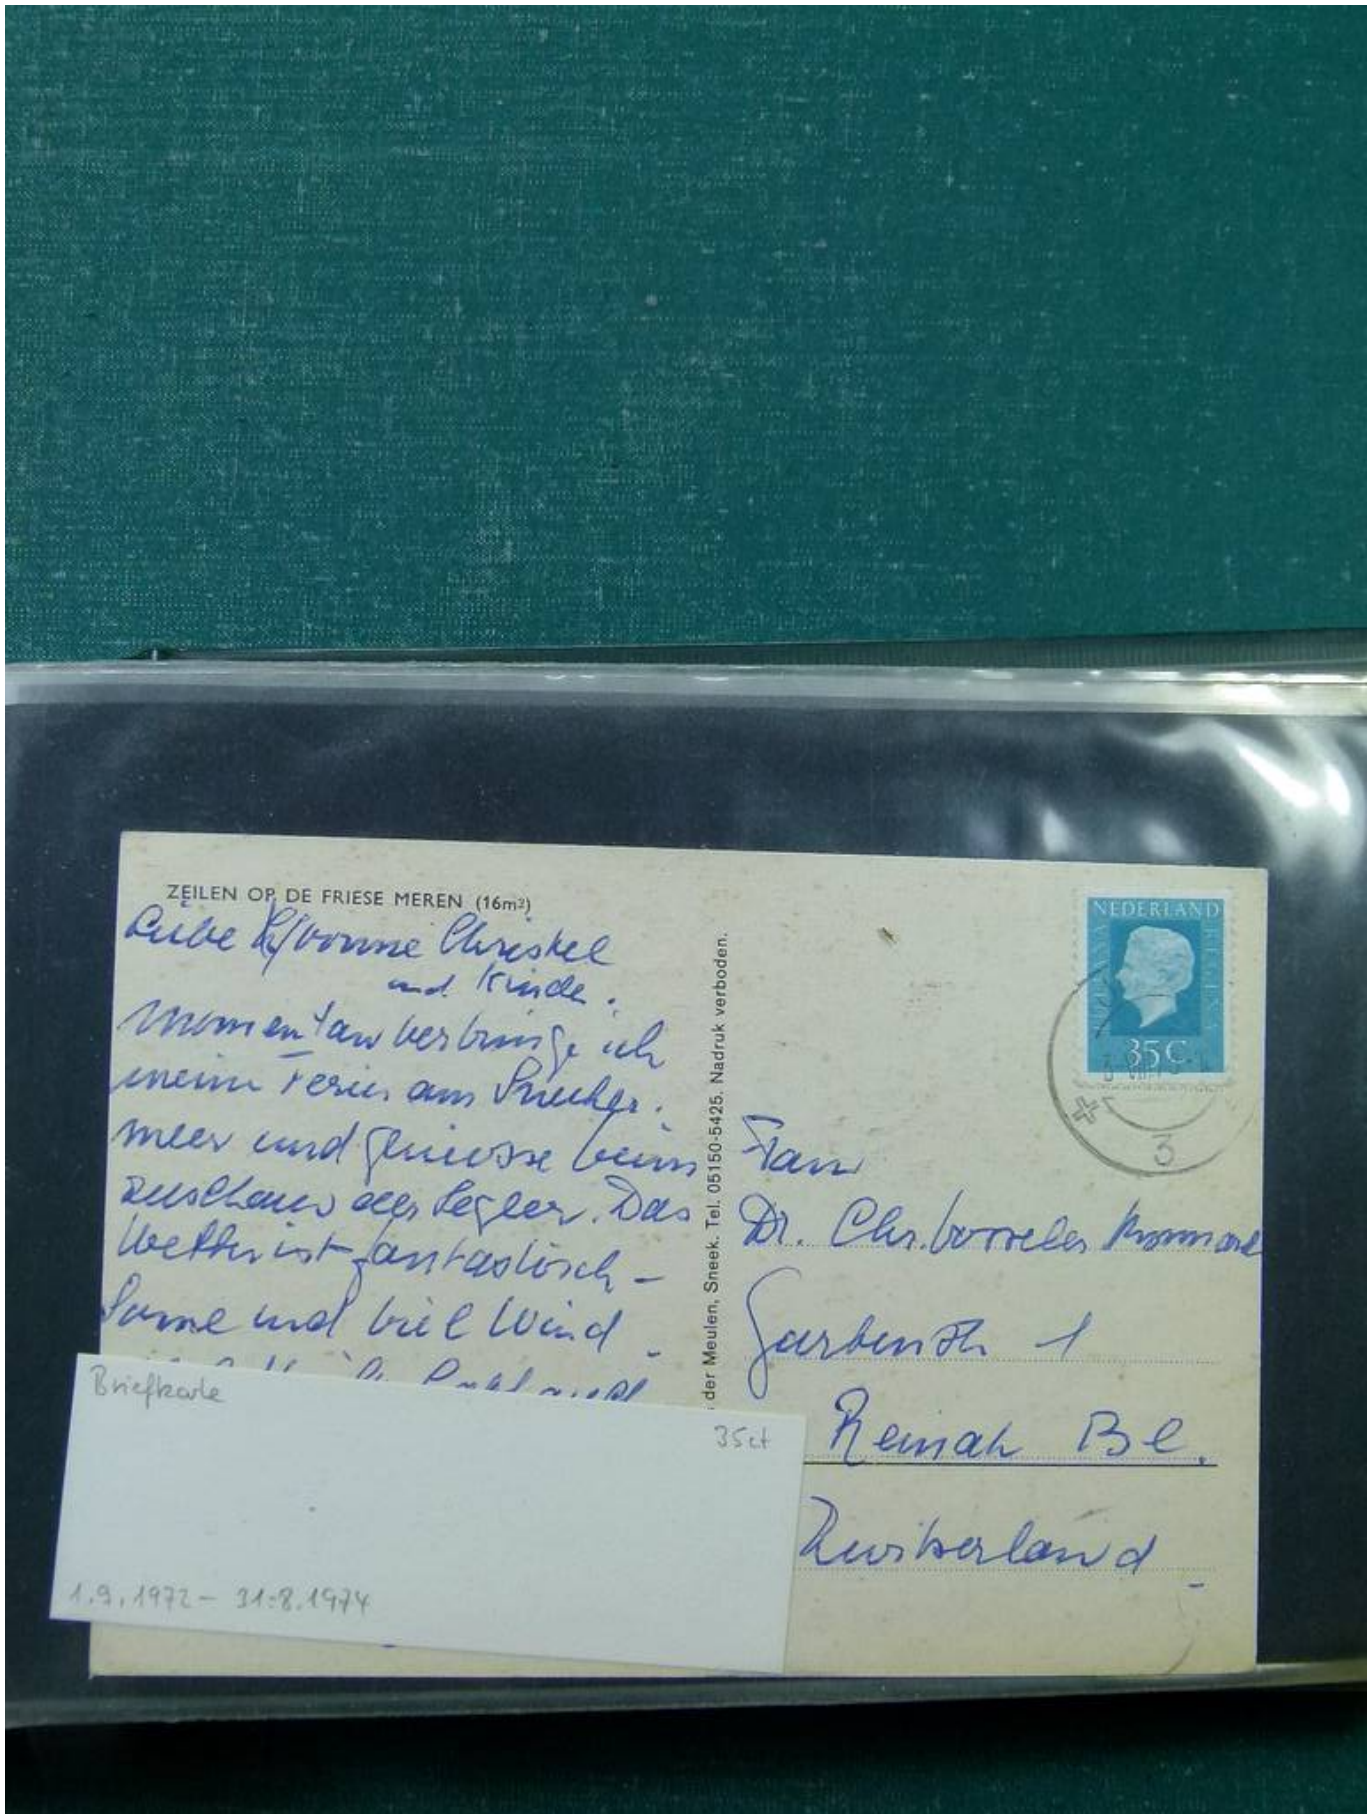 ZEILEN OP DE FRIESE MEREN (16m²)
Liebe Yvonne Christel
und Kinder.
Momentan verbringe ich
meine Ferien am Sneeker.
meer und geniesse beim
zuschauen der Segler. Das
Wetter ist fantastisch –
Sonne und viel Wind.
der Meulen, Sneek. Tel. 05150-5425. Nadruk verboden.
NEDERLAND
JULIANA REGINA
35 C
3
Frau
Dr. Chr.
Gartenstr 1
Reinach Bl.
Zwitserland
Briefkarte
35ct
1.9.1972 – 31.8.1974